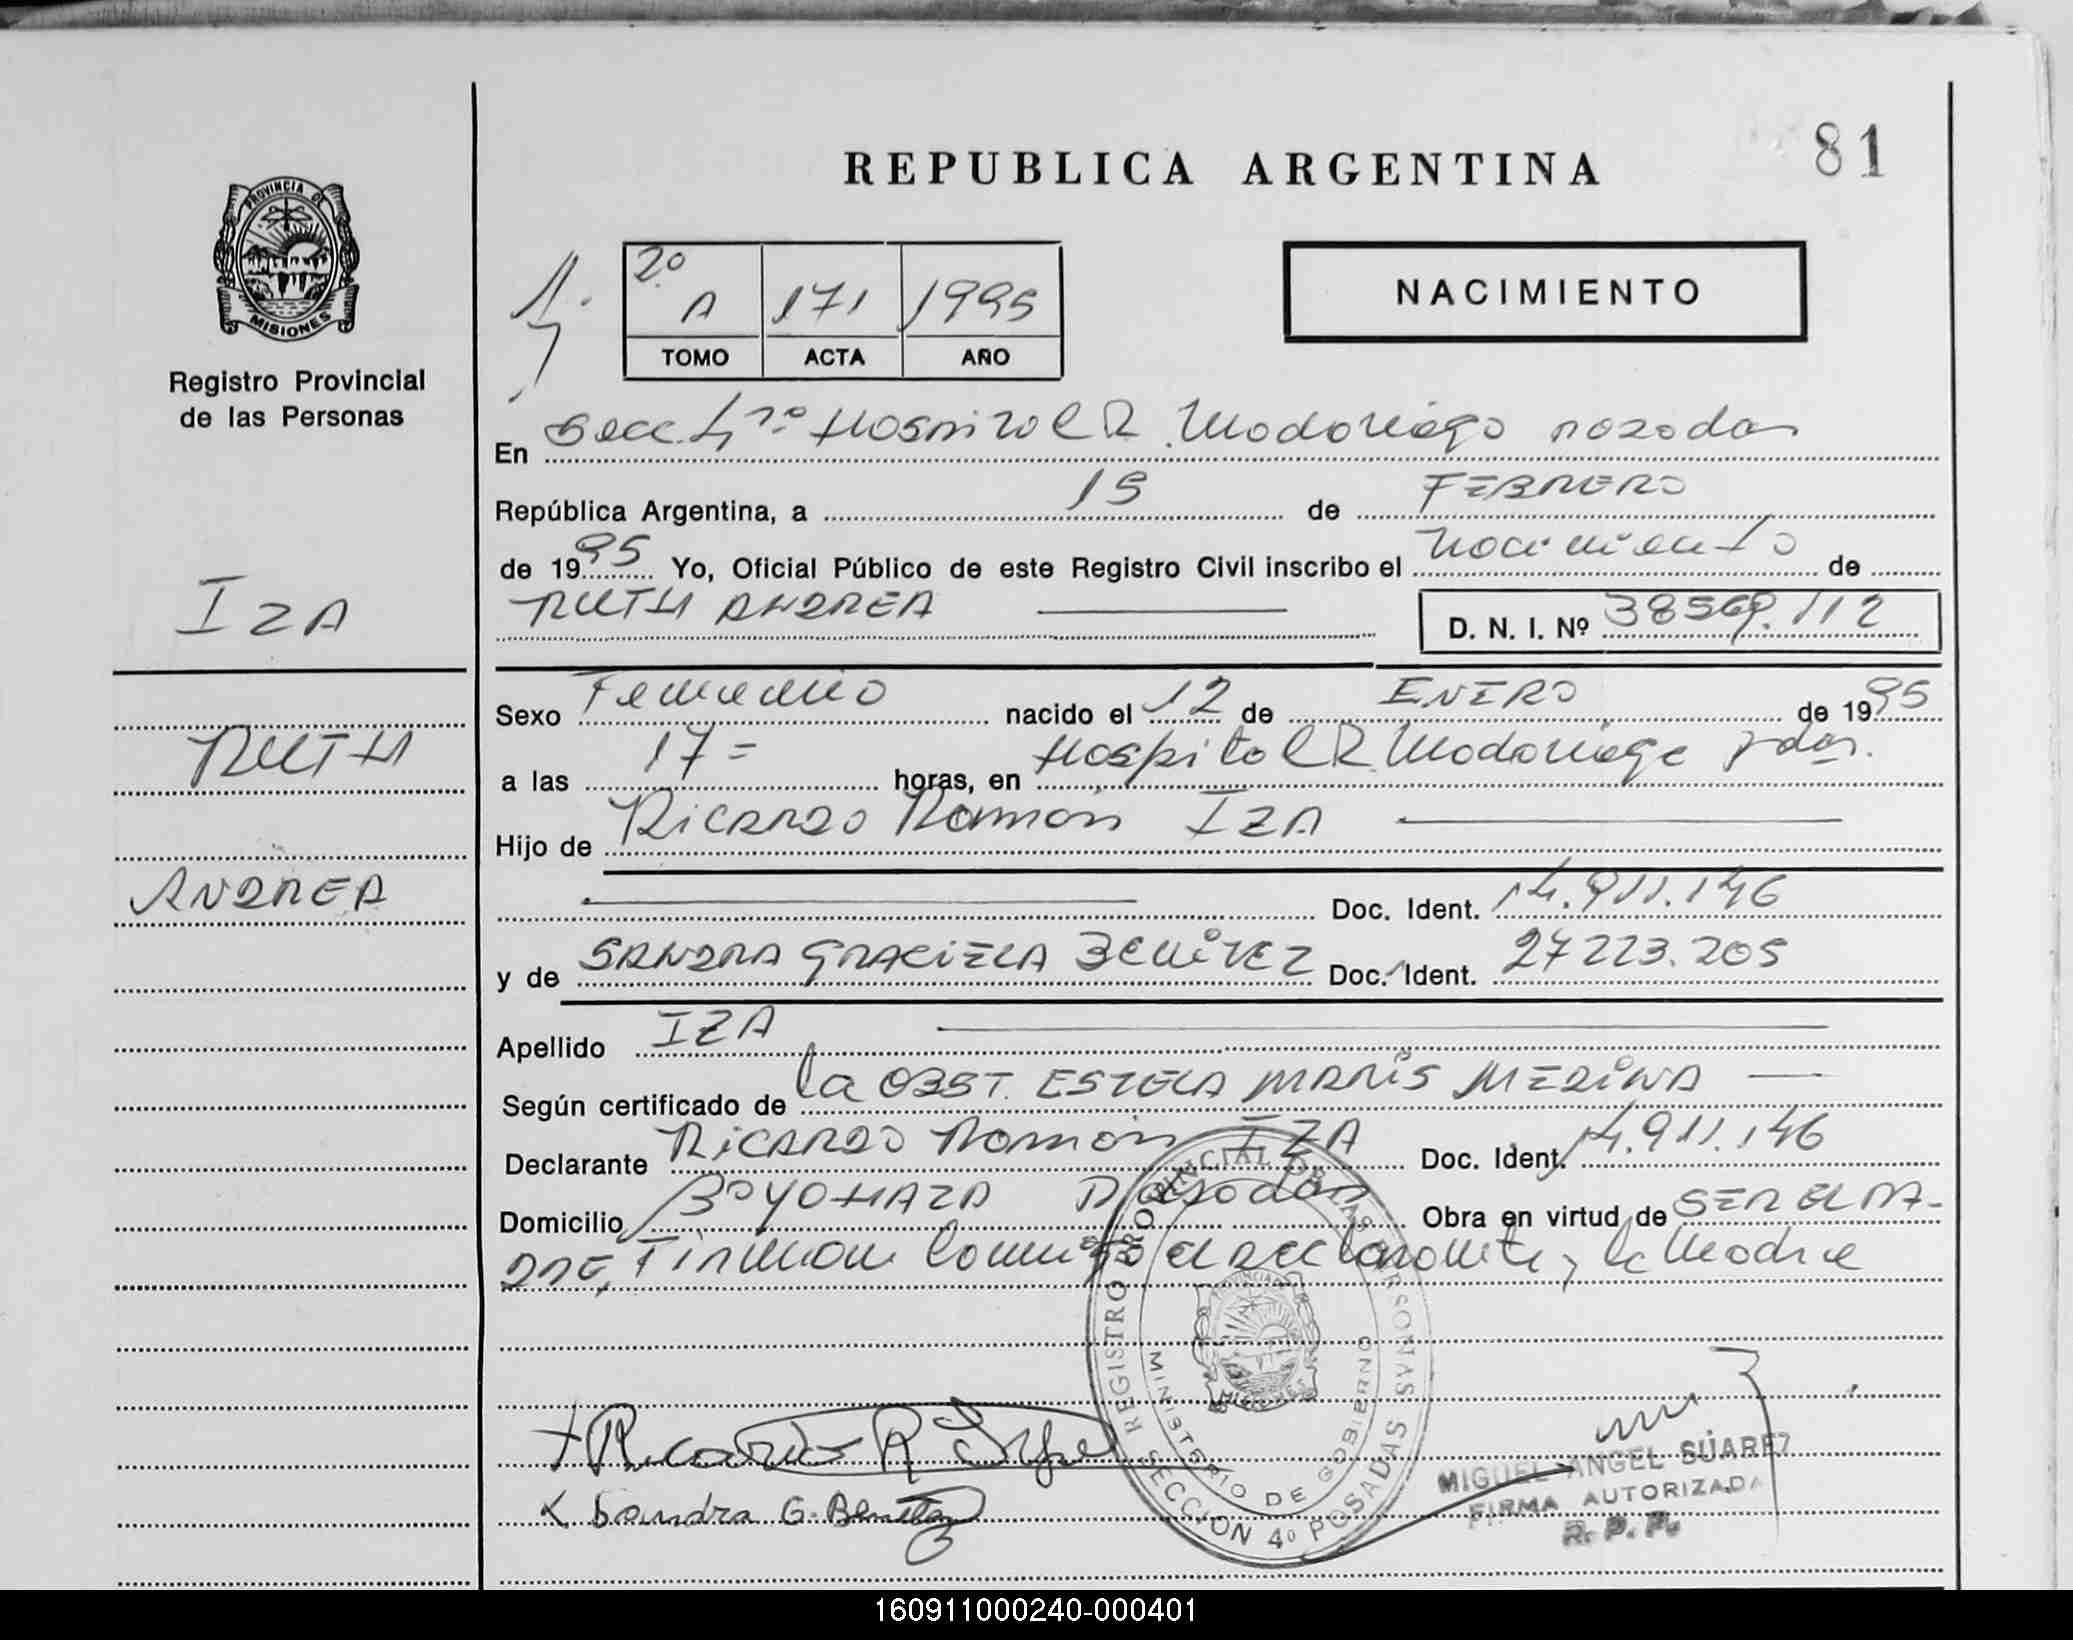 REPUBLICA ARGENTINA
81
PROVINCIA DE
MISIONES
Registro Provincial
de las Personas
2º A 171 1995
TOMO ACTA AÑO
NACIMIENTO
En Secc. 4ª Hospital R. Madariaga Posadas
República Argentina, a 15 de FEBRERO
de 1995 Yo, Oficial Público de este Registro Civil inscribo el nacimiento de
RUTH ANDREA
D. N. I. Nº 38569.112
IZA
RUTH
ANDREA
Sexo Femenino nacido el 12 de ENERO de 1995
a las 17= horas, en Hospital R. Madariaga Pdas.
Hijo de Ricardo Ramón IZA
Doc. Ident. 14.911.146
y de SANDRA GRACIELA BENITEZ Doc. Ident. 27223.205
Apellido IZA
Según certificado de la OBST. ESTELA MARIS MEDINA
Declarante RICARDO Ramón IZA Doc. Ident. 14.911.146
Domicilio Posadas Obra en virtud de SER EL PA-
DRE, Firman conmigo el declarante y la Madre
REGISTRO PROVINCIAL DE LAS PERSONAS
MINISTERIO DE GOBIERNO
MISIONES
SECCION 4º POSADAS
Sandra G. Benitez
MIGUEL ANGEL SUAREZ
FIRMA AUTORIZADA
R. P. P.
160911000240-000401